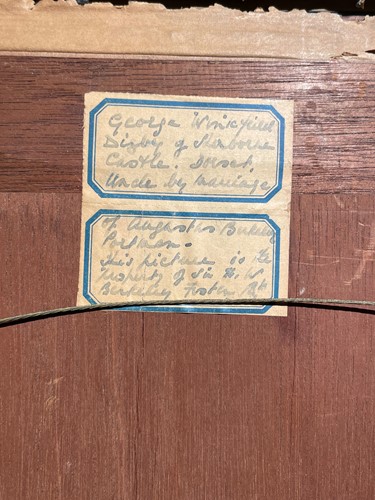 George Winkfield
Digby of Sherborne
Castle. Dorset,
Uncle by marriage
of Augustus Berkeley
Portman.
This picture is the
property of Sir H. W
Berkeley Foster Bt